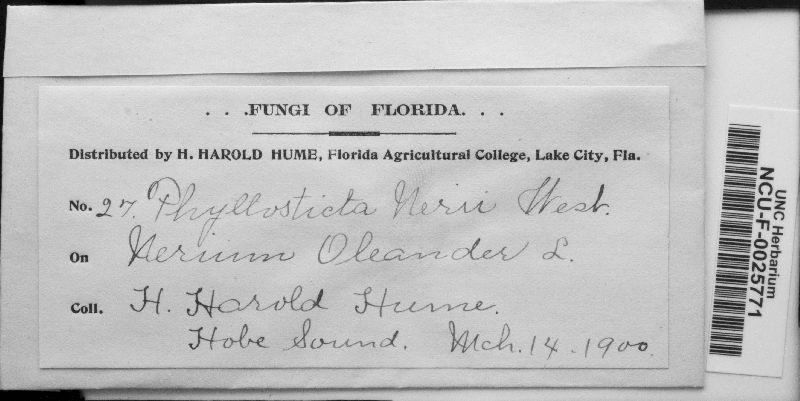 . . .FUNGI OF FLORIDA. . .
Distributed by H. HAROLD HUME, Florida Agricultural College, Lake City, Fla.
No. 27. Phyllosticta Nerii West.
On Nerium Oleander L.
Coll. H. Harold Hume.
Hobe Sound. Mch. 14. 1900.
UNC Herbarium
NCU-F-0025771